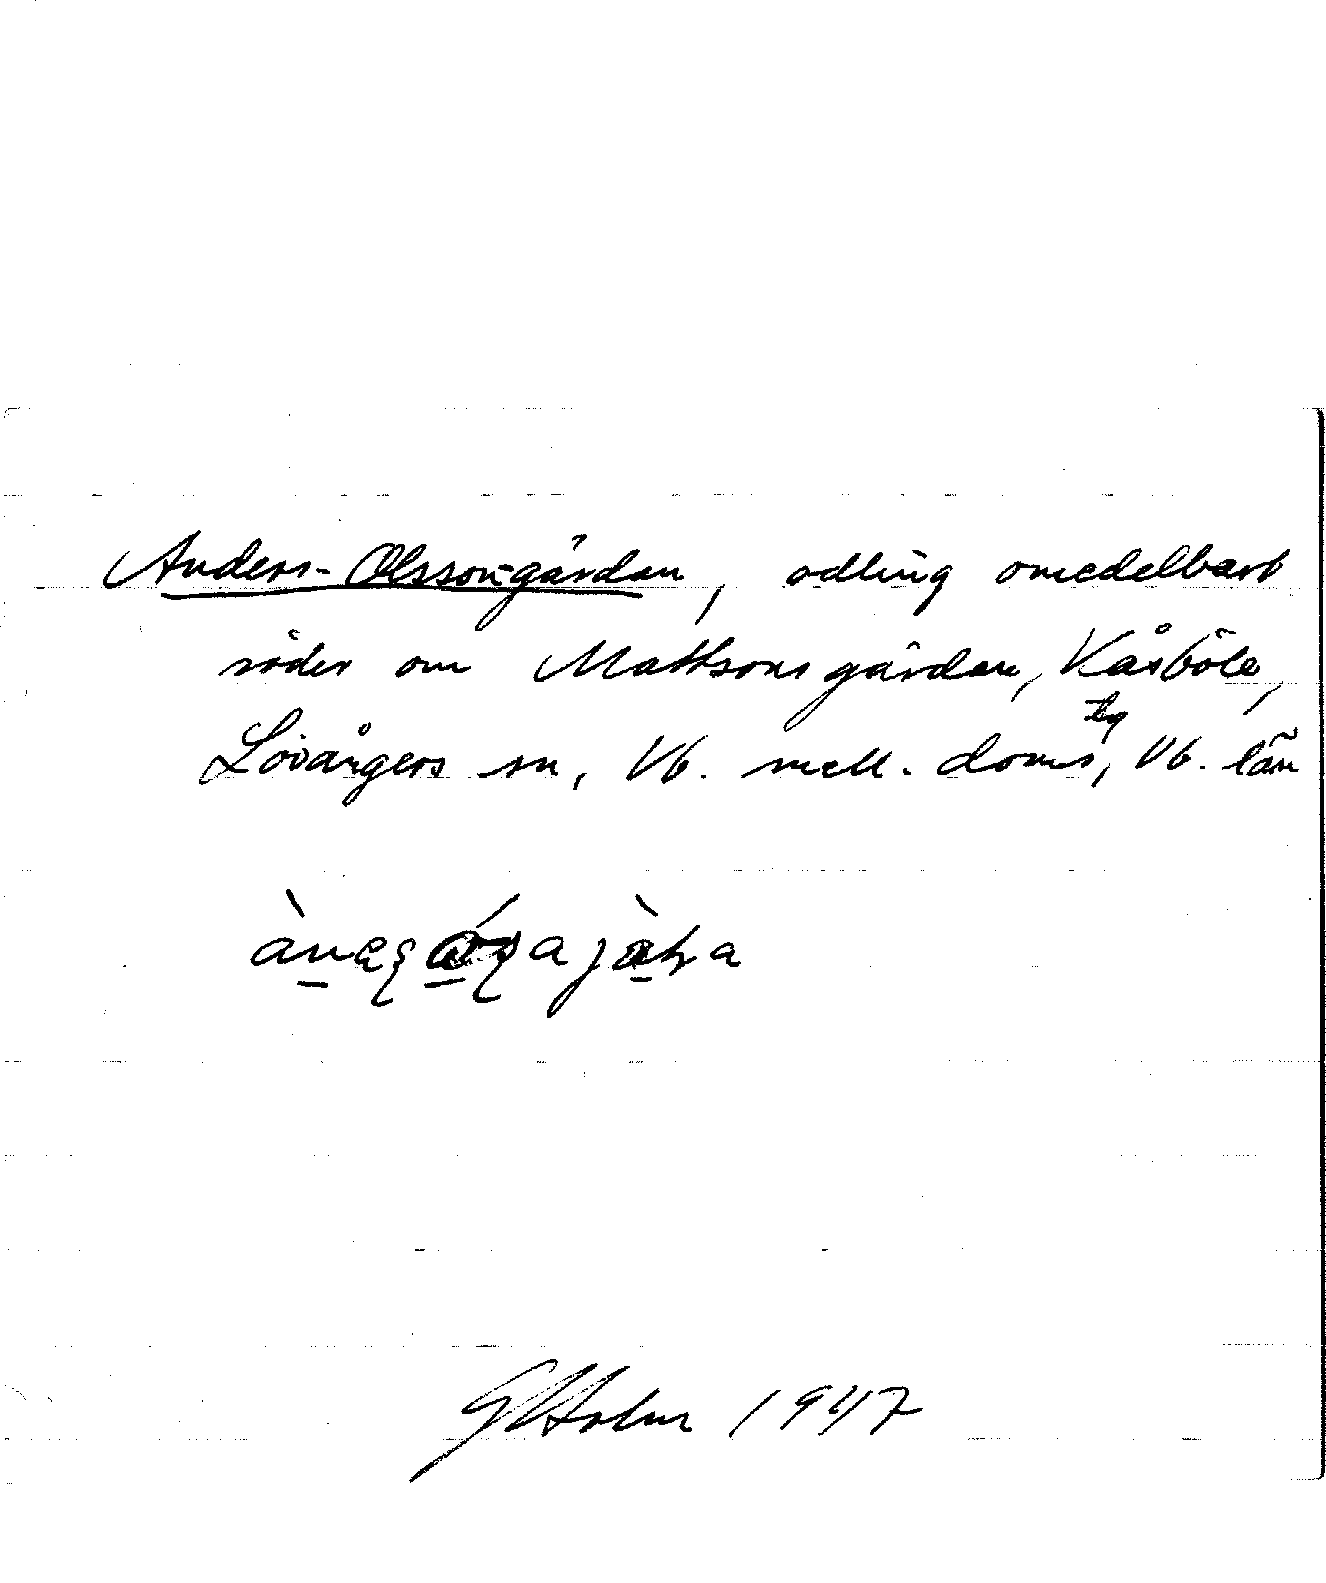 Anders-Olssongärdan, odling omedelbart
söder om Mattsonsgärdan, Kåsböle,
Lövångers sn, Vb. mell. doms tg, Vb. län
GHolm 1947